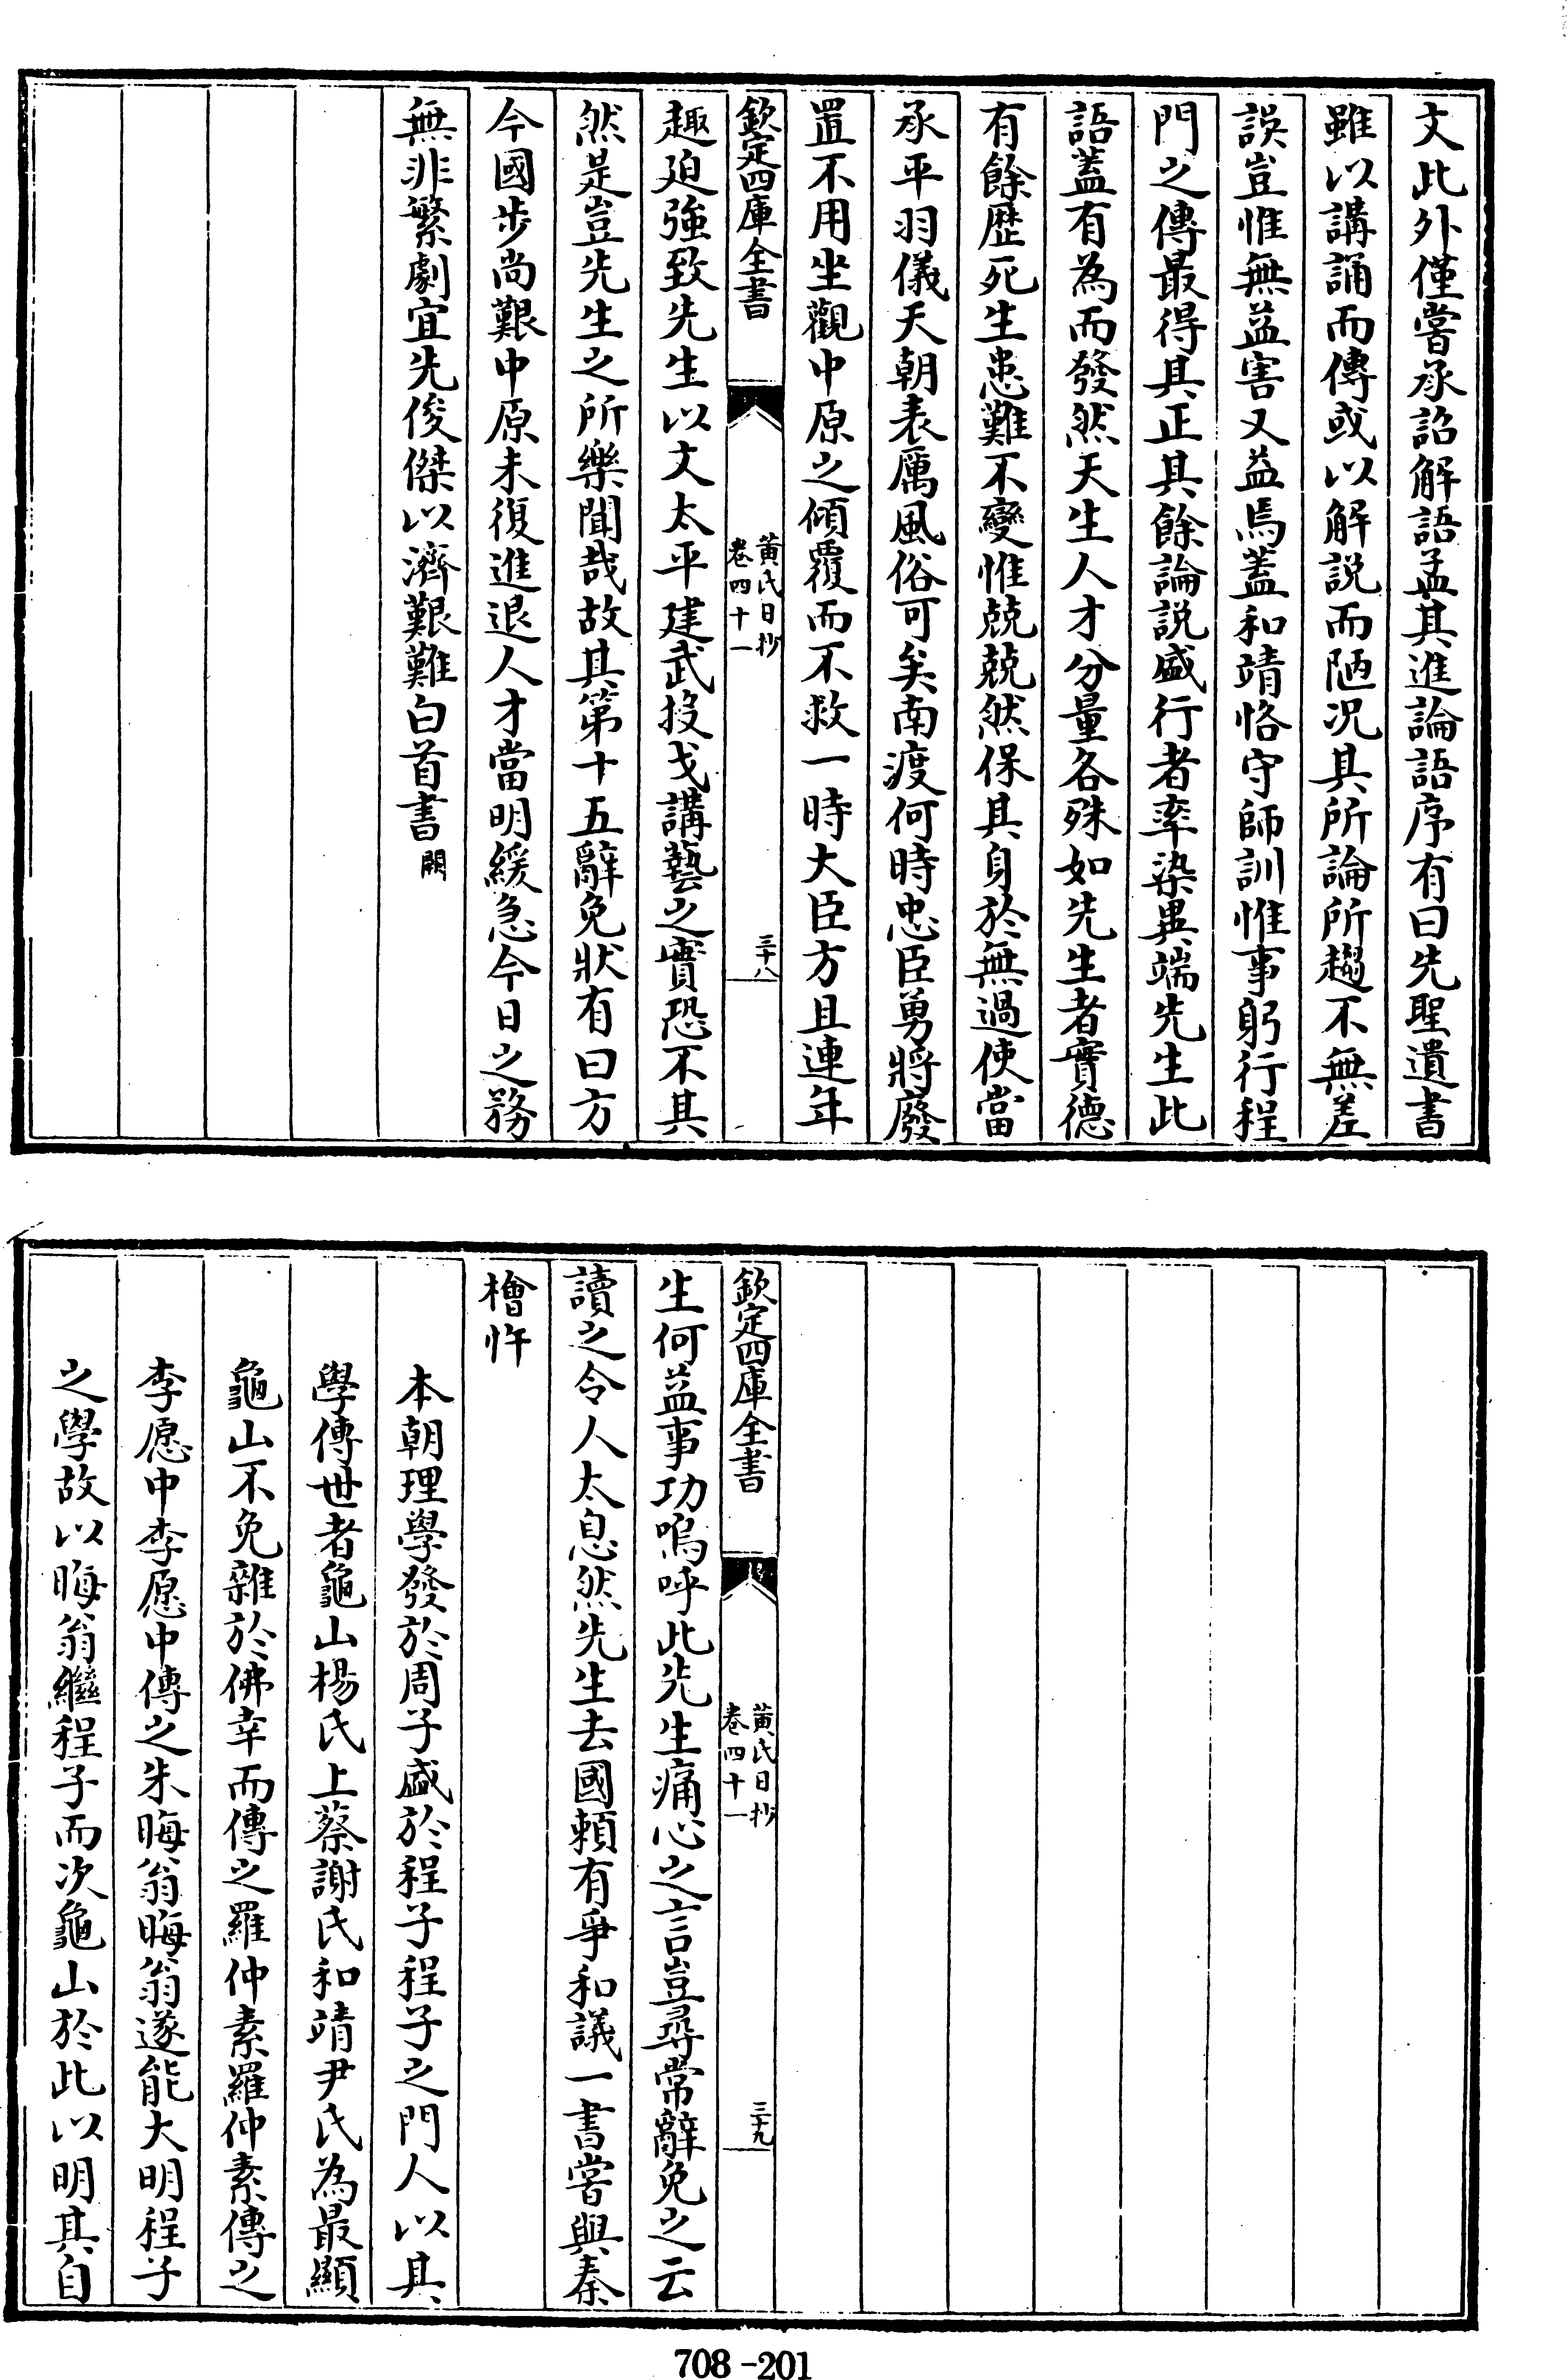 文此外僅嘗承詔解語孟其進論語序有曰先聖遺書
雖以講誦而傳或以解説而陋况其所論所趨不無差
誤豈惟無益害又益焉蓋和靖恪守師訓惟事躬行程
門之傳最得其正其餘論説盛行者率染異端先生此
語蓋有為而發然天生人才分量各殊如先生者實德
有餘歴死生患難不變惟兢兢然保其身於無過使當
承平羽儀天朝表厲風俗可矣南渡何時忠臣勇將廢
置不用坐觀中原之傾覆而不救一時大臣方且連年
欽定四庫全書
黄氏日抄
卷四十一
三十八
趣廹強致先生以文太平建武投戈講藝之實恐不其
然是豈先生之所樂聞哉故其第十五辭免狀有曰方
今國步尚艱中原未復進退人才當明緩急今日之務
無非繁劇宜先俊傑以濟艱難白首書闕
欽定四庫全書
黄氏日抄
卷四十一
三十九
生何益事功嗚呼此先生痛心之言豈尋常辭免之云
讀之令人太息然先生去國頼有爭和議一書嘗與秦
檜忤
本朝理學發於周子盛於程子程子之門人以其
學傳世者龜山楊氏上蔡謝氏和靖尹氏為最顯
龜山不免雜於佛幸而傳之羅仲素羅仲素傳之
李愿中李愿中傳之朱晦翁晦翁遂能大明程子
之學故以晦翁繼程子而次龜山於此以明其自
708-201